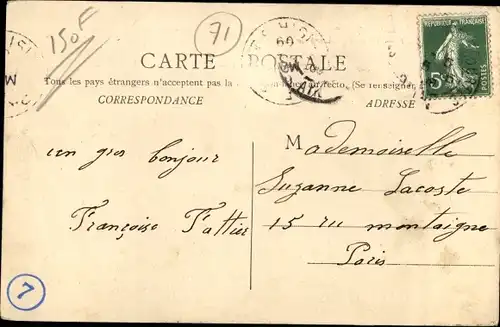 150F
71
CARTE POSTALE
Tous les pays étrangers n'acceptent pas la recto. (Se renseigner
CORRESPONDANCE
ADRESSE
REPUBLIQUE FRANÇAISE
5c
POSTES
un gros bonjour
Françoise Fattier
Mademoiselle
Suzanne Lacoste
15 ru montaigne
Paris
7